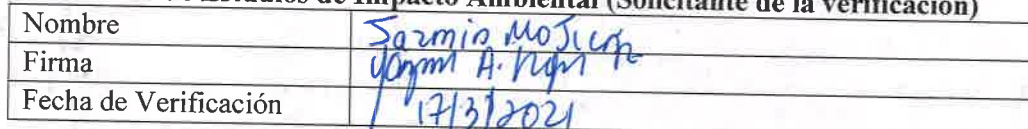 Estudios de Impacto Ambiental (Solicitante de la verificación)
Nombre Jazmin Mojica
Firma
Fecha de Verificación 17/3/2021